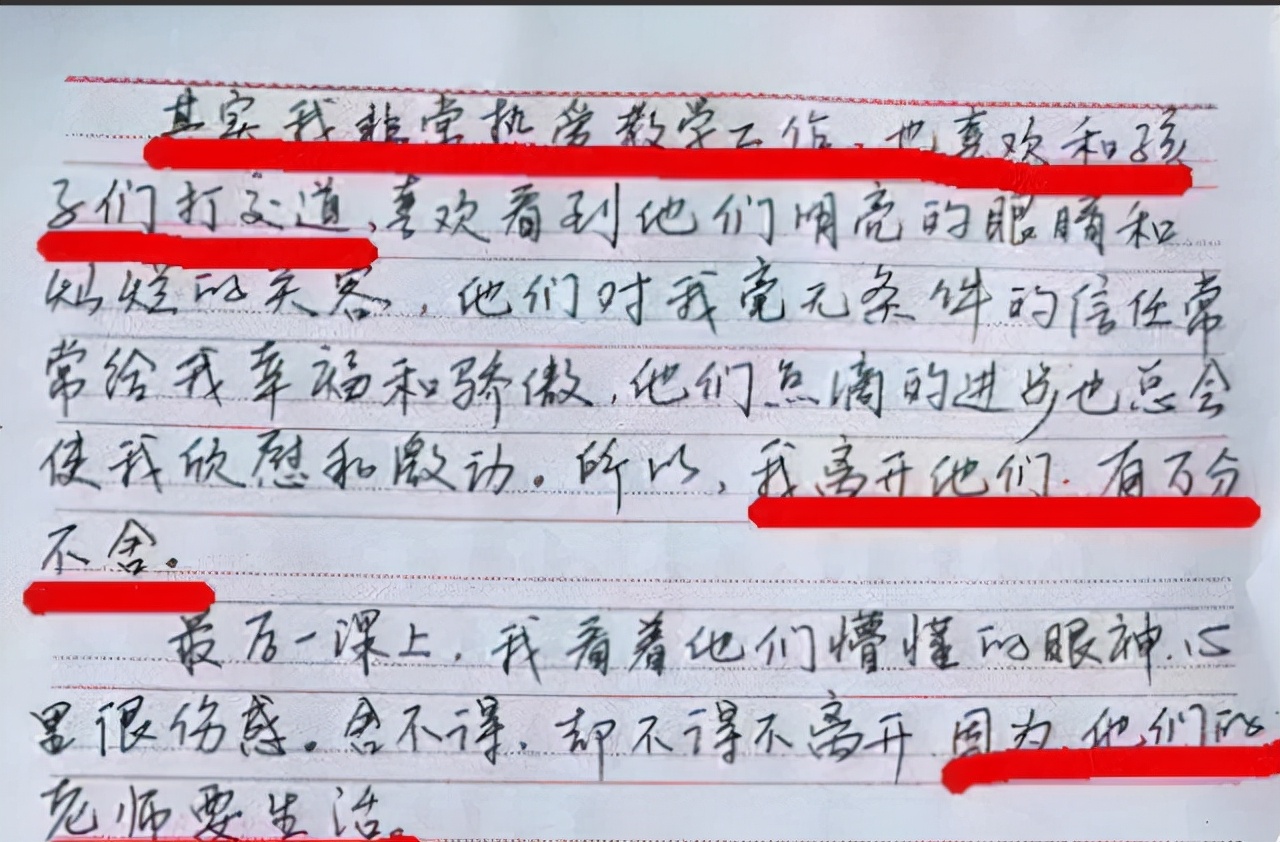 其实我非常热爱教学工作.也喜欢和孩
子们打交道,喜欢看到他们明亮的眼睛和
灿烂的笑容,他们对我毫无条件的信任常
常给我幸福和骄傲,他们点滴的进步也总会
使我欣慰和激动.所以,我离开他们.有万分
不舍.
最后一课上,我看着他们懵懂的眼神.心
里很伤感.舍不得.却不得不离开 因为他们的
老师要生活。